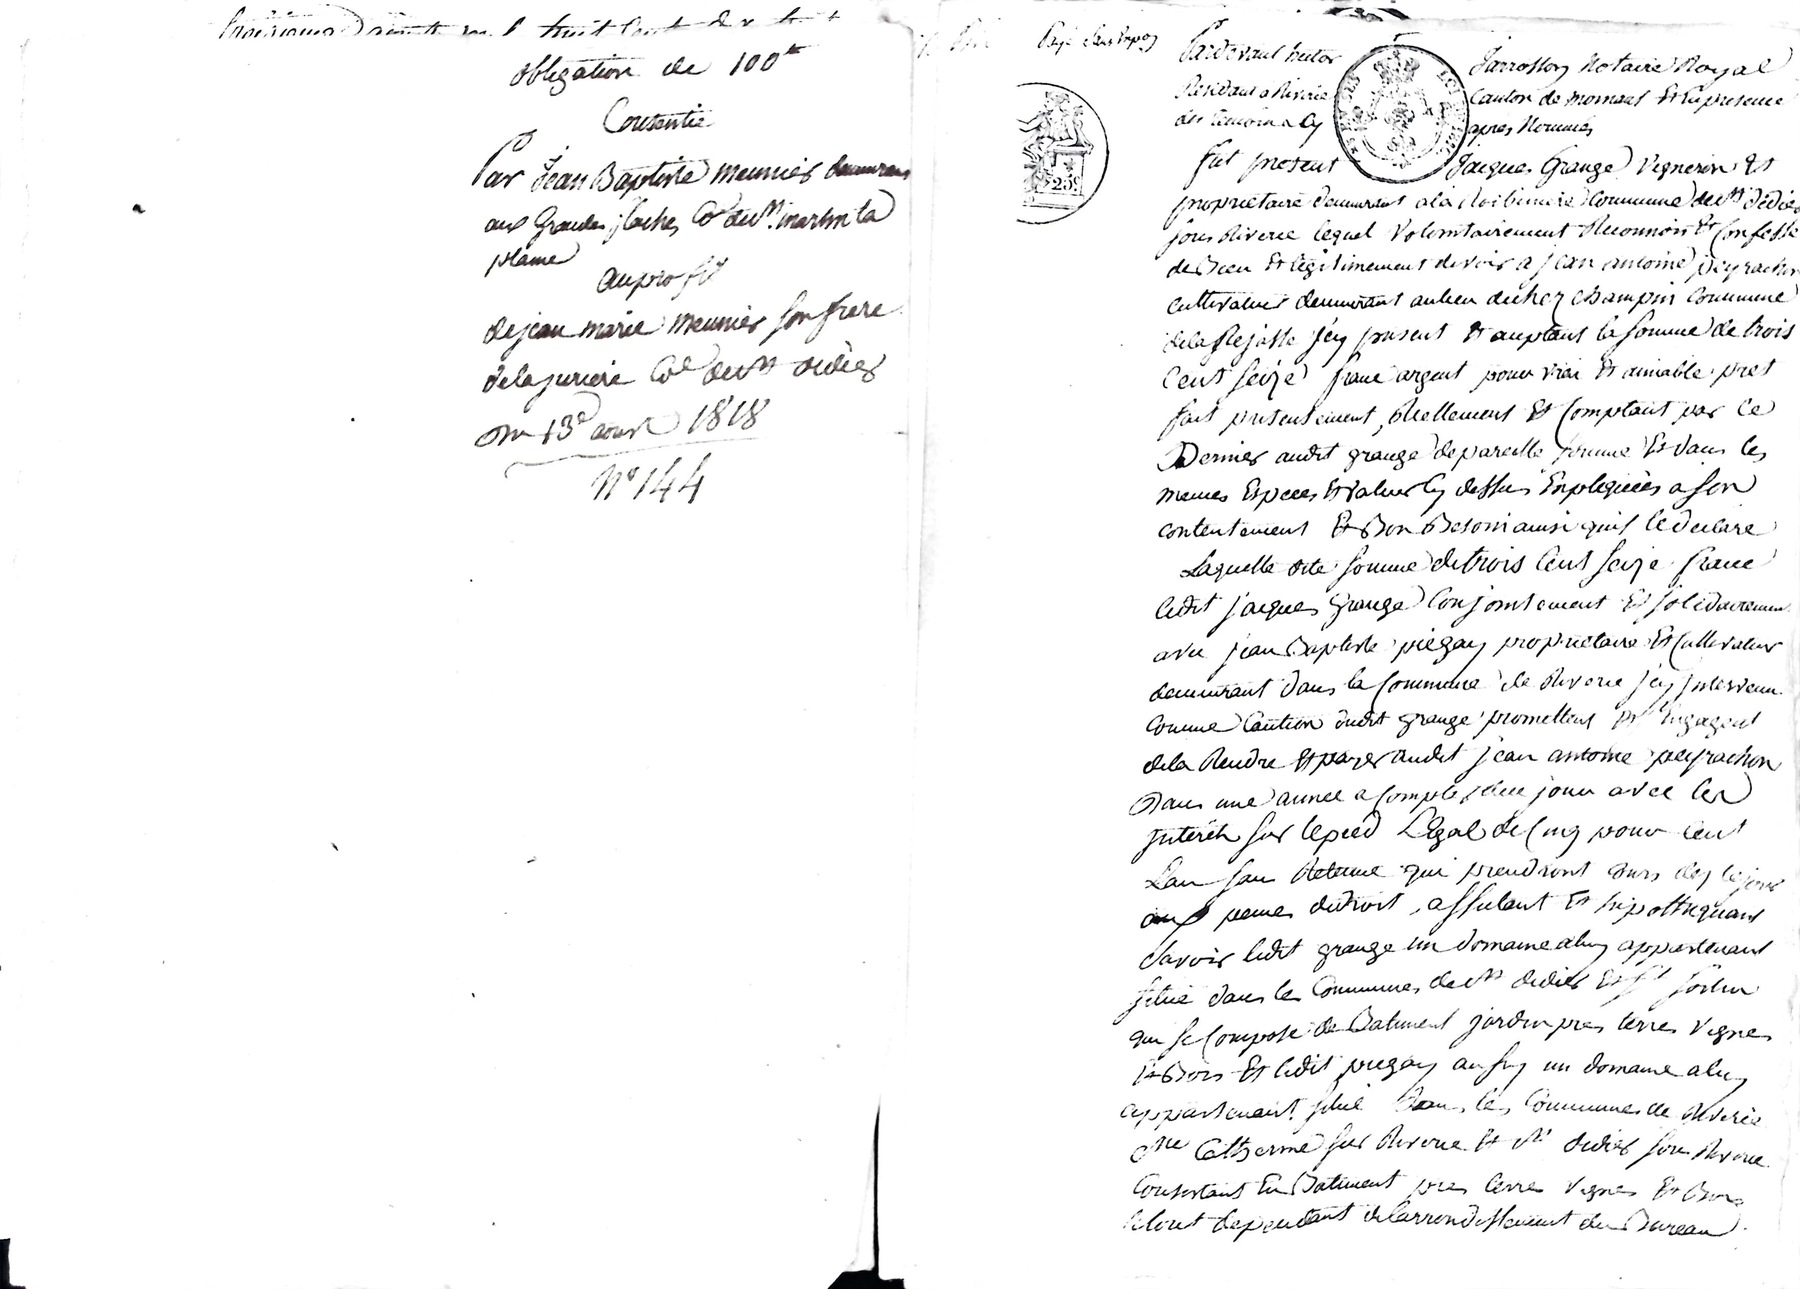 obligation de 100ᶠʳ
Consentie
Par Jean Baptiste meunier demeurant
aux Grandes flaches Cᵉ de Sᵗ. martin la
plaine
au profit
de jean marie meunier son frere
de la juriere Cᵉ de Sᵗ didier
Du 13ᵉ aout 1818
N° 144
Pardevant hector Jarrosson Notaire Royal
Residant a Riverie Canton de mornant Et En presence
des temoins cy apres Nommés
fut present Jacques Grange Vigneron Et
proprietaire demeurant a la Commune de Sᵗ Didier
sous Riverie lequel Volontairement Reconnoit Et Confesse
de Bien Et legitimement devoir a jean antoine peyrachon
cultivateur demeurant au lieu de chez champin commune
de la Rejasse jcy present Et acceptant la somme de trois
Cent Seize franc argent pour vrai Et amiable pret
fait presentement, Réellement Et Comptant par ce
Dernier audit grange de pareille somme Et dans les
memes Especes Et valeur cy dessus Expliquées a son
contentement Et Bon Besoin ainsi qu'il le declare
Laquelle dite somme de trois Cent Seize franc
ledit jacques Grange Conjointement Et solidairement
avec jean Baptiste piegay proprietaire Et Cultivateur
demeurant dans la Commune de Riverie jcy jntervenu
Comme Caution dudit grange promettent Et s'Engagent
de la Rendre Et payer audit jean antoine peyrachon
Dans une année a Compter de ce jour avec les
jnterêts sur le pied Légal de Cinq pour Cent
L'an sans Retenue qui prendront cours des ce jour
aux peines de droit, affectant Et hipothequant
Savoir ledit grange un domaine a luy appartenant
situé dans les Communes de Sᵗ didier Et Sᵗ Sorlin
qui se Compose de Batiment jardin pres terres vignes
Et Bois Et ledit piegay aussy un domaine a luy
appartenant situé Dans les Communes de Riverie
Sᵗᵉ Catherine sur Riverie Et Sᵗ didier sous Riverie
Consistant En Batiment pres terres vignes Et Bois
le tout dependant de l'arrondissement du Bureau